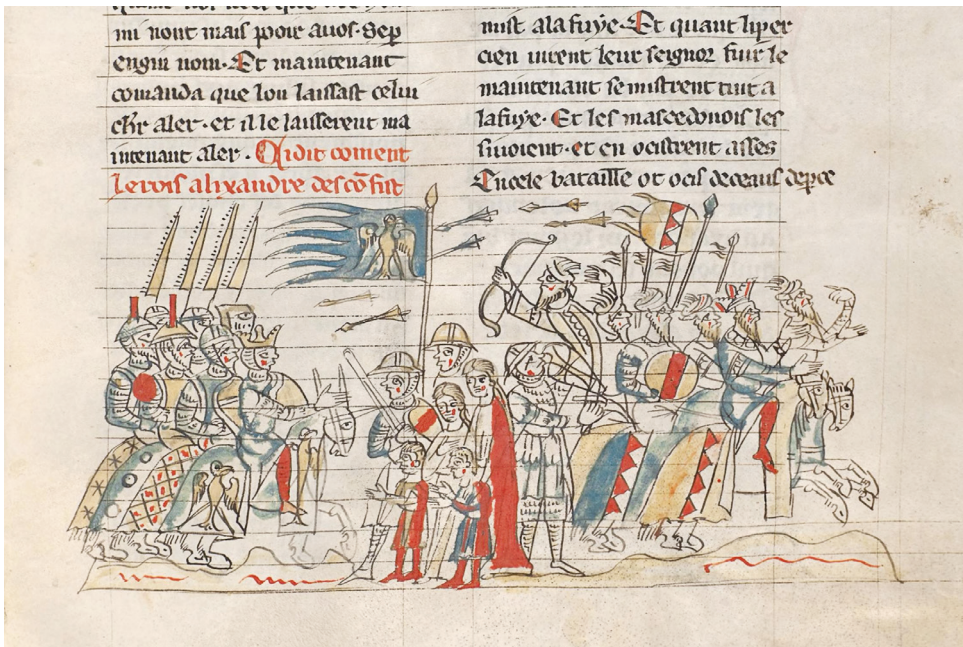 mi nont mais pooir a vos. Sep
engin non. Et maintenant
comanda que lon laissast celui
chr aler. et il le laisserent ma
intenant aler. Ci dit coment
le rois alixandre desco̅fist
mist a la fuye. Et quant li per
cien uirent leur seignor fuir le
maintenant se mistrent tuit a
la fuye. Et les mascedonois les
siuoient. et en ocistrent asses
En cele bataille ot ocis de ceaus de perce